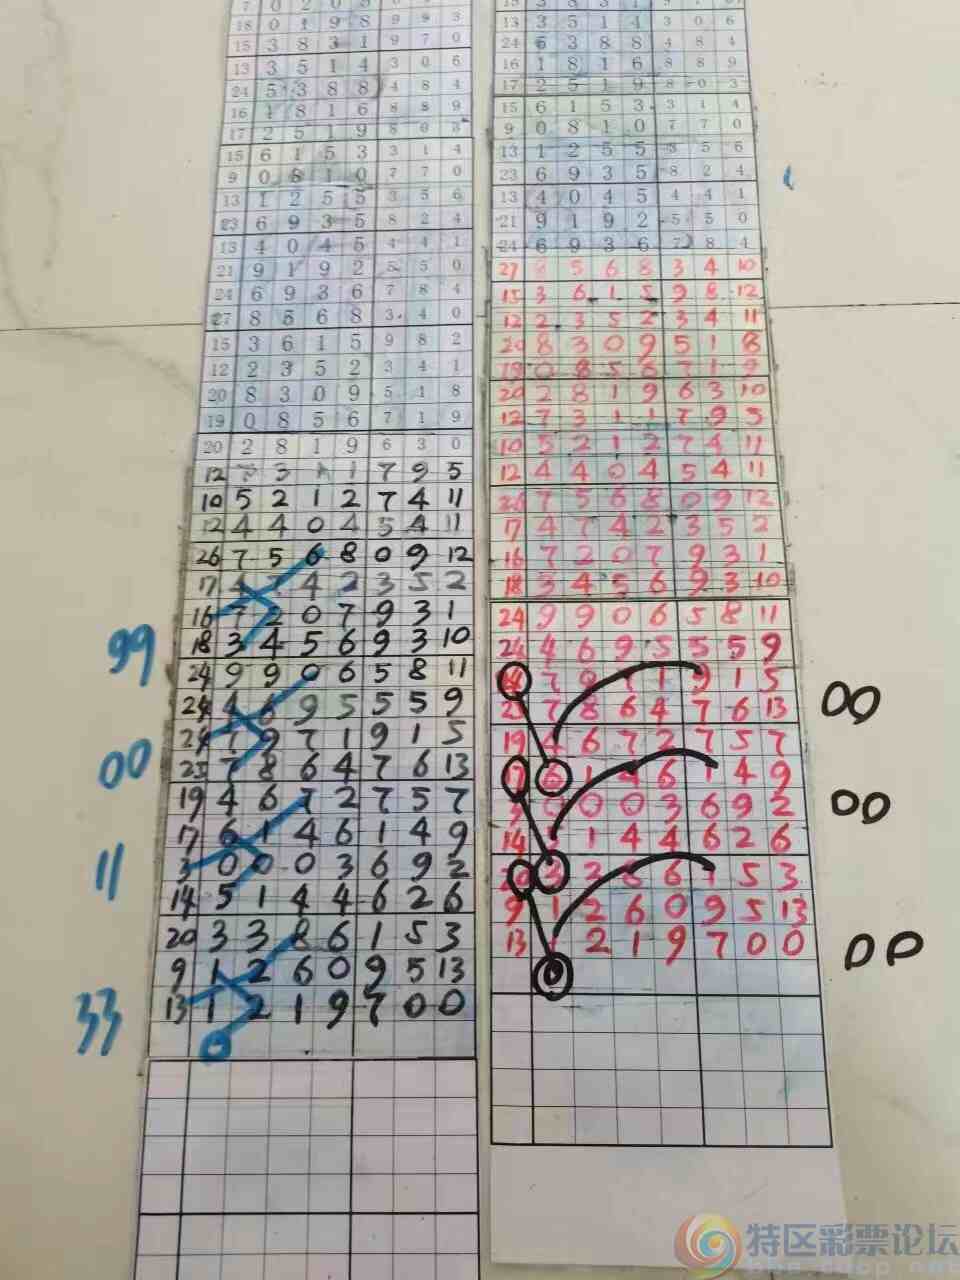 18 0 1 9 8 9 9 3
15 3 8 3 1 9 7 0
13 3 5 1 4 3 0 6
24 5 3 8 8 4 8 4
16 1 8 1 6 8 8 9
17 2 5 1 9 8 0 3
15 6 1 5 3 3 1 4
9 0 8 1 0 7 7 0
13 1 2 5 5 3 5 6
23 6 9 3 5 8 2 4
13 4 0 4 5 4 4 1
21 9 1 9 2 5 5 0
24 6 9 3 6 7 8 4
27 8 5 6 8 3 4 0
15 3 6 1 5 9 8 2
12 2 3 5 2 3 4 1
20 8 3 0 9 5 1 8
19 0 8 5 6 7 1 9
20 2 8 1 9 6 3 0
12 7 3 1 1 7 9 5
10 5 2 1 2 7 4 11
12 4 4 0 4 5 4 11
26 7 5 6 8 0 9 12
17 4 7 4 2 3 5 2
16 7 2 0 7 9 3 1
18 3 4 5 6 9 3 10
99
24 9 9 0 6 5 8 11
24 4 6 9 5 5 5 9
24 7 9 7 1 9 1 5
00
25 7 8 6 4 7 6 13
19 4 6 7 2 7 5 7
17 6 1 4 6 1 4 9
3 0 0 0 3 6 9 2
11
14 5 1 4 4 6 2 6
20 3 3 8 6 1 5 3
9 1 2 6 0 9 5 13
13 1 2 1 9 7 0 0
33
13 3 5 1 4 3 0 6
24 5 3 8 8 4 8 4
16 1 8 1 6 8 8 9
17 2 5 1 9 8 0 3
15 6 1 5 3 3 1 4
9 0 8 1 0 7 7 0
13 1 2 5 5 3 5 6
23 6 9 3 5 8 2 4
13 4 0 4 5 4 4 1
21 9 1 9 2 5 5 0
24 6 9 3 6 7 8 4
27 8 5 6 8 3 4 10
15 3 6 1 5 9 8 12
12 2 3 5 2 3 4 11
20 8 3 0 9 5 1 8
19 0 8 5 6 7 1 9
20 2 8 1 9 6 3 10
12 7 3 1 1 7 9 5
10 5 2 1 2 7 4 11
12 4 4 0 4 5 4 11
26 7 5 6 8 0 9 12
17 4 7 4 2 3 5 2
16 7 2 0 7 9 3 1
18 3 4 5 6 9 3 10
24 9 9 0 6 5 8 11
24 4 6 9 5 5 5 9
7 9 7 1 9 1 5
00
25 7 8 6 4 7 6 13
19 4 6 7 2 7 5 7
17 6 1 4 6 1 4 9
0 0 0 3 6 9 2
00
14 1 4 4 6 2 6
20 3 2 8 6 1 5 3
9 1 2 6 0 9 5 13
13 1 2 1 9 7 0 0
00
0
特区彩票论坛